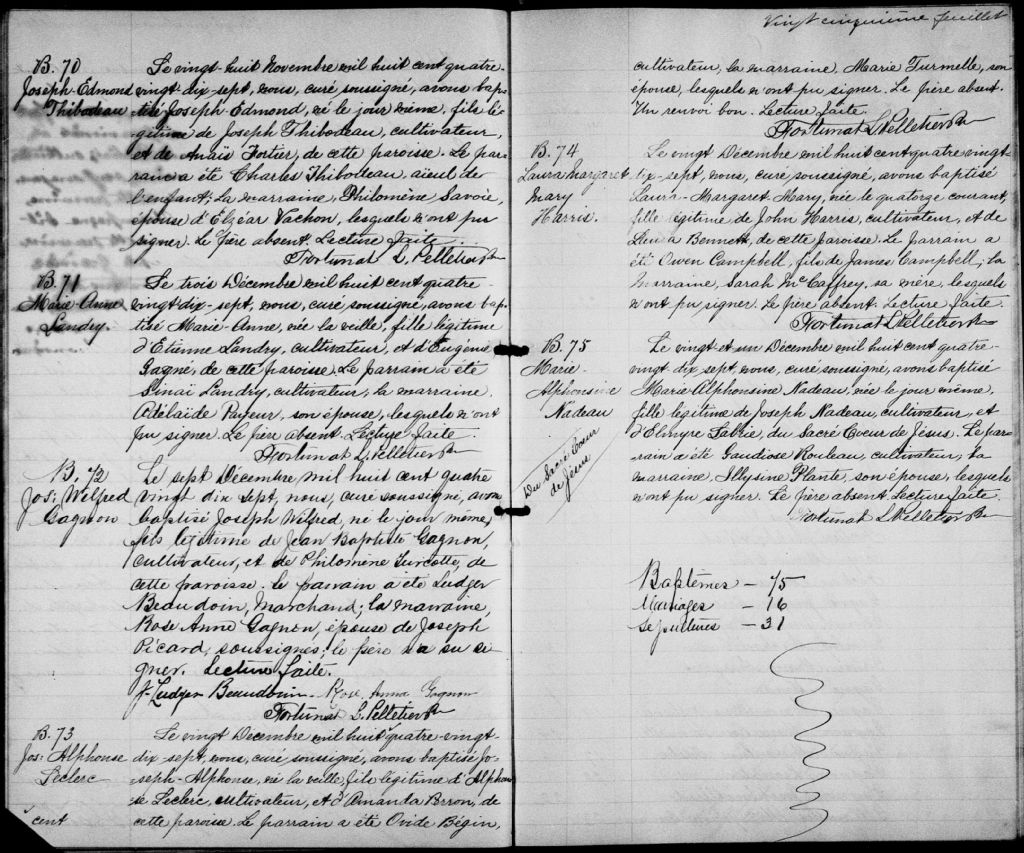 B. 70
Joseph-Edmond
Thibodeau
Le vingt-huit Novembre mil huit cent quatre-
vingt-dix-sept, nous, curé soussigné, avons bap-
tisé Joseph-Edmond, né le jour même, fils lé-
gitime de Joseph Thibodeau, cultivateur,
et de Anaïs Fortier, de cette paroisse. Le par-
rain a été Charles Thibodeau, aieul de
l'enfant; la marraine, Philomène Savoie,
épouse d'Elzéar Vachon, lesquels n'ont pu
signer. Le père absent. Lecture faite.
Fortunat L. Pelletier Ptre
B. 71
Marie-Anne
Landry.
Le trois Décembre mil huit cent quatre-
vingt-dix-sept, nous, curé soussigné, avons bap-
tisé Marie-Anne, née la veille, fille légitime
d'Etienne Landry, cultivateur, et d'Eugénie
Gagné, de cette paroisse. Le parrain a été
Sinaï Landry, cultivateur, la marraine,
Adélaide Payeur, son épouse, lesquels n'ont
pu signer. Le père absent. Lecture faite.
Fortunat L. Pelletier Ptre
B. 72
Jos: Wilfred
Gagnon
Le sept Décembre mil huit cent quatre
vingt dix sept, nous, curé soussigné, avons
baptisé Joseph Wilfred, né le jour même,
fils légitime de Jean Baptiste Gagnon,
cultivateur, et de Philomène Turcotte, de
cette paroisse. Le parrain a été Ludger
Beaudoin, Marchand; la marraine,
Rose Anne Gagnon, épouse de Joseph
Picard, soussignés; le père n'a su si
gner. Lecture faite.
J. Ludger Beaudoin. Rose Anna Gagnon
Fortunat L. Pelletier Ptre
B. 73
Jos: Alphonse
Leclerc
Le vingt Décembre mil huit quatre-vingt-
dix-sept, nous, curé soussigné, avons baptisé Jo-
seph-Alphonse, né la veille, fils légitime d'Alphon-
se Leclerc, cultivateur, et d'Amanda Perron, de
cent
cette paroisse. Le parrain a été Ovide Bégin,
Vingt cinquième feuillet
cultivateur, la marraine, Marie Turmelle, son
épouse, lesquels n'ont pu signer. Le père absent.
Un renvoi bon. Lecture faite.
Fortunat L. Pelletier Ptre
B. 74
Laura Margaret
Mary
Harris.
Le vingt Décembre mil huit cent quatre vingt
dix-sept, nous, curé soussigné, avons baptisé
Laura-Margaret Mary, née le quatorze courant,
fille légitime de John Harris, cultivateur, et de
Bennett, de cette paroisse. Le parrain a
été Owen Campbell, fils de James Campbell; la
marraine, Sarah McCaffrey, sa mère, lesquels
n'ont pu signer. Le père absent. Lecture faite.
Fortunat L. Pelletier Ptre
B. 75
Marie
Alphonsine
Nadeau
Du Sacré Coeur
de Jésus
Le vingt-et-un Décembre mil huit cent quatre-
vingt dix sept, nous, curé soussigné, avons baptisé
Marie Alphonsine Nadeau, née le jour même,
fille légitime de Joseph Nadeau, cultivateur, et
d'Elmyre Labrie, du Sacré Coeur de Jésus. Le par-
rain a été Gaudiose Rouleau, cultivateur; la
marraine, Plante, son épouse, lesquels
n'ont pu signer. Le père absent. Lecture faite.
Fortunat L. Pelletier Ptre
Baptêmes – 75
Mariages – 16
Sépultures – 31